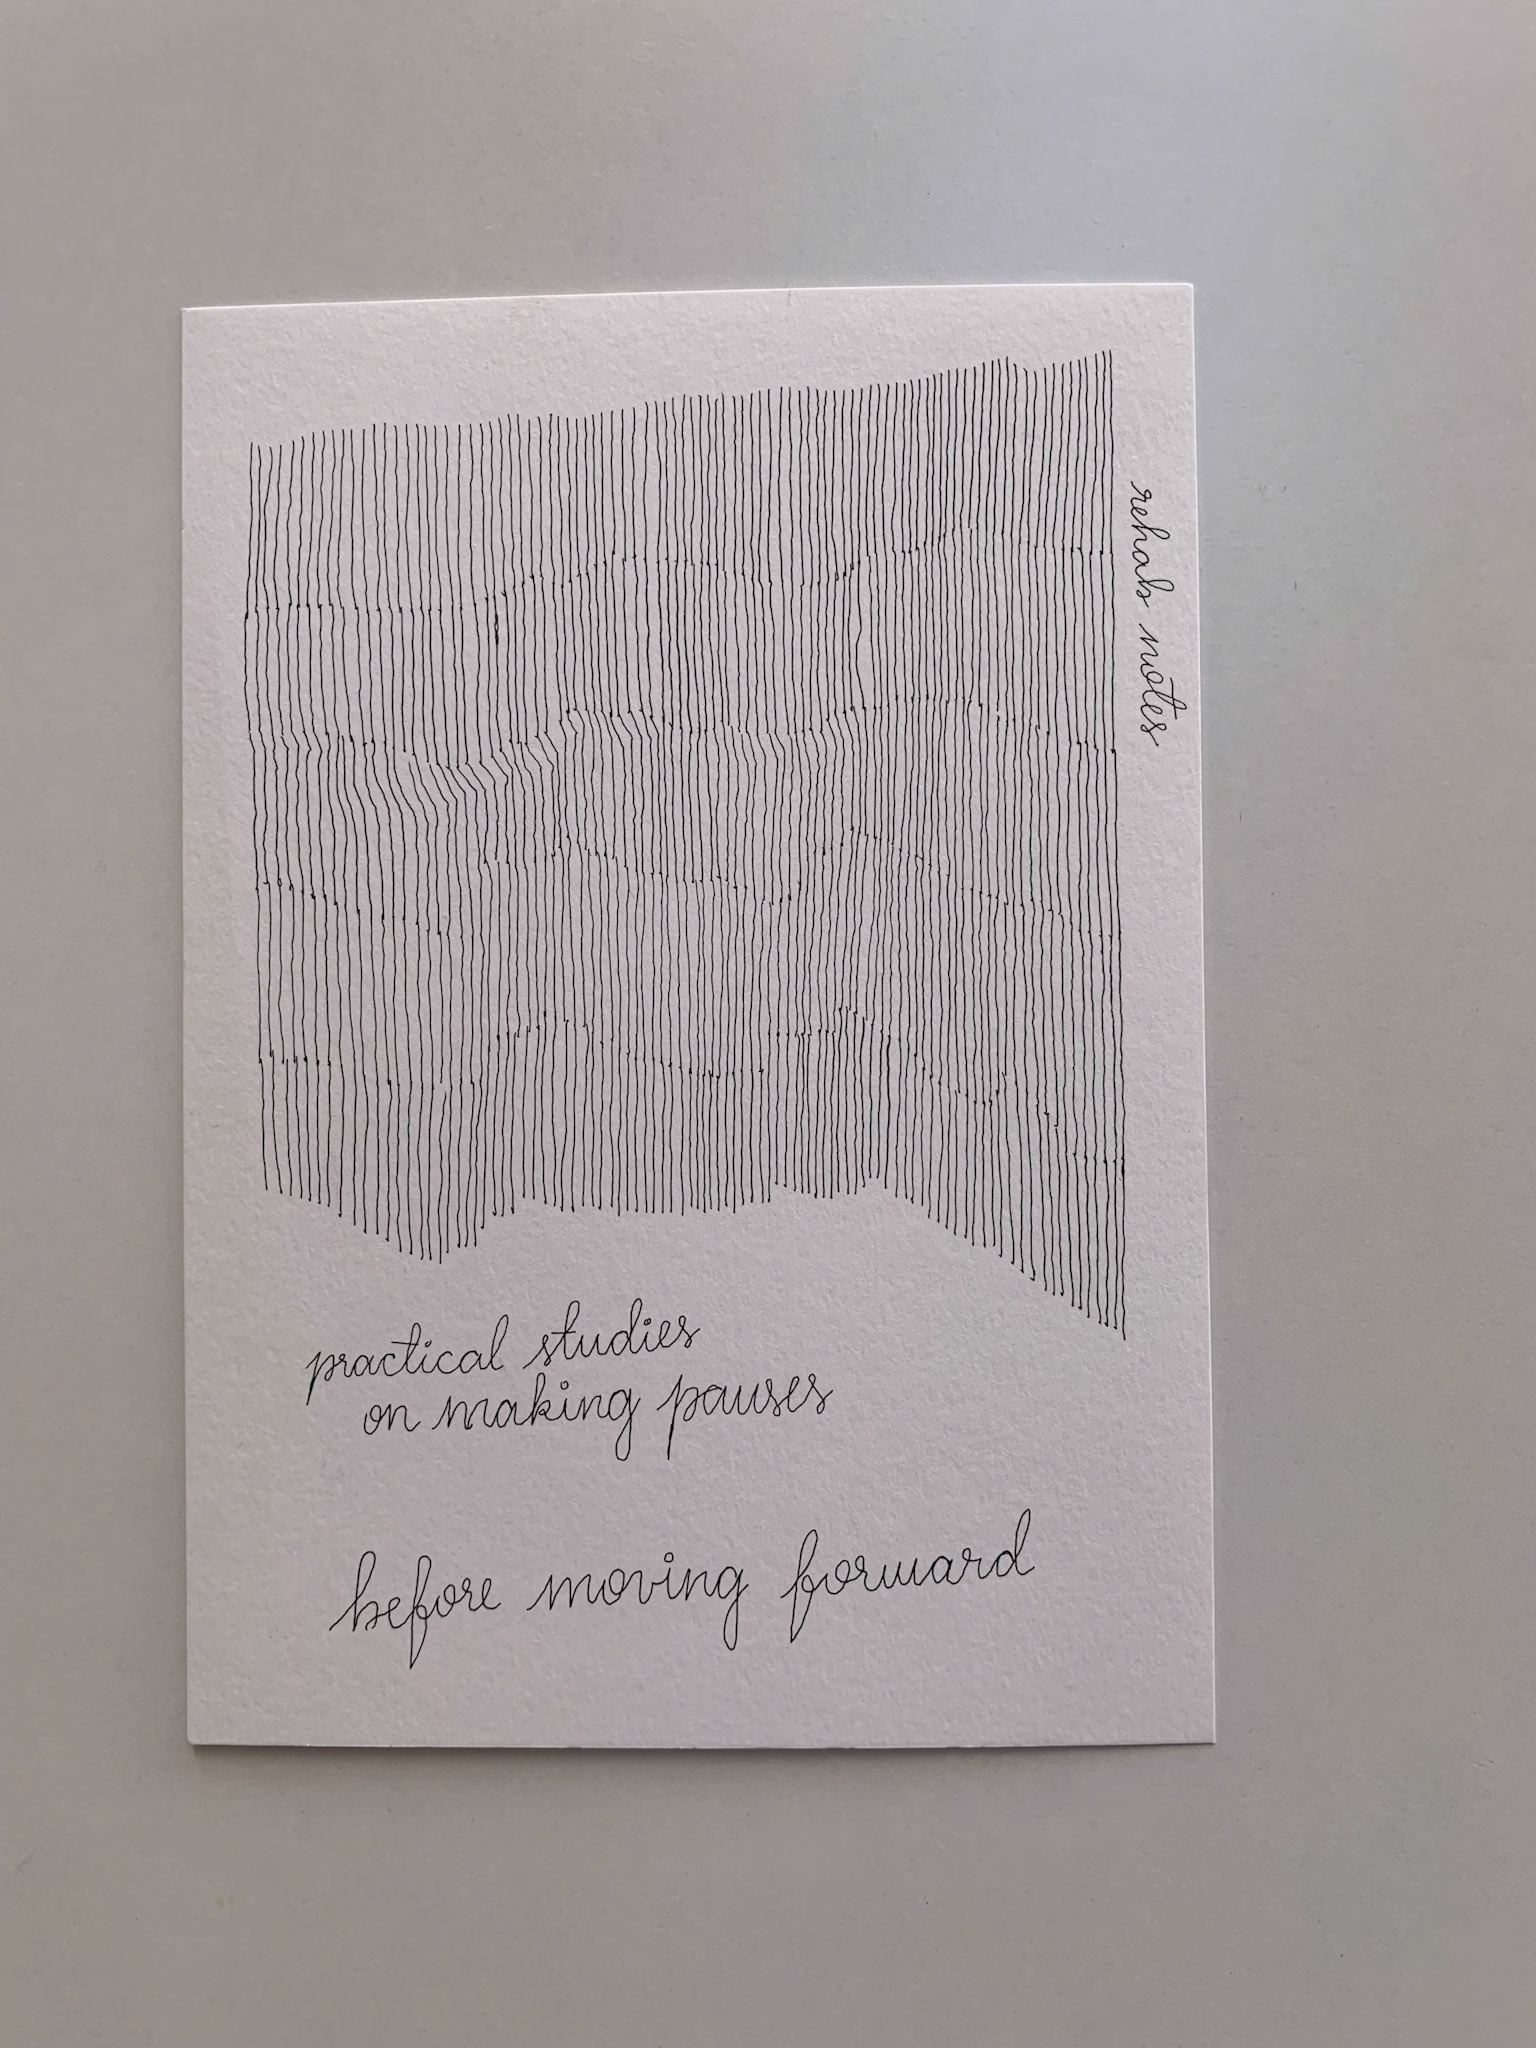 rehab notes
practical studies
on making pauses
before moving forward